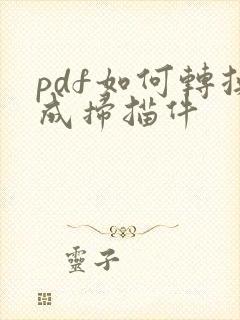 pdf如何轉換
成掃描件
靈子